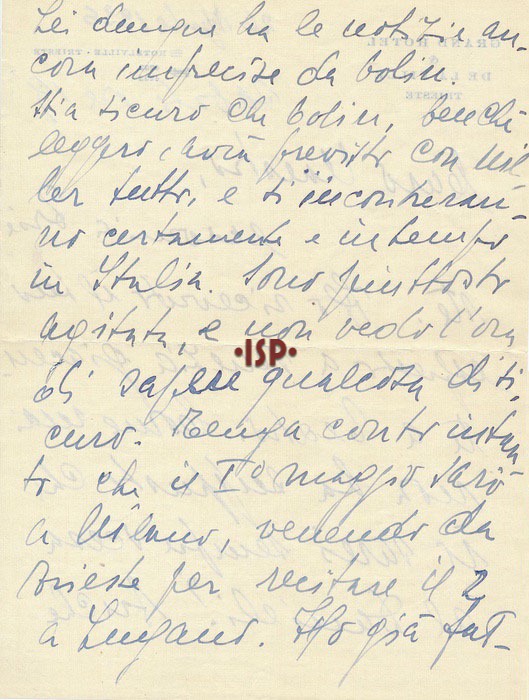 Lei dunque ha le notizie an-
cora imprecise da Colin.
Stia sicuro che Colin, benché
leggero, avrà previsto con Mil-
ler tutto, e si incontreran-
no certamente e in tempo
in Italia. Sono piuttosto
agitata, e non vedo l'ora
•ISP•
di sapere qualcosa di si-
curo. Tenga conto intan-
to che il I° maggio sarò
a Milano, venendo da
Trieste per recitare il 2
a Lugano. Ho già fat-
GRAND HOTEL
DE LA
TRIESTE